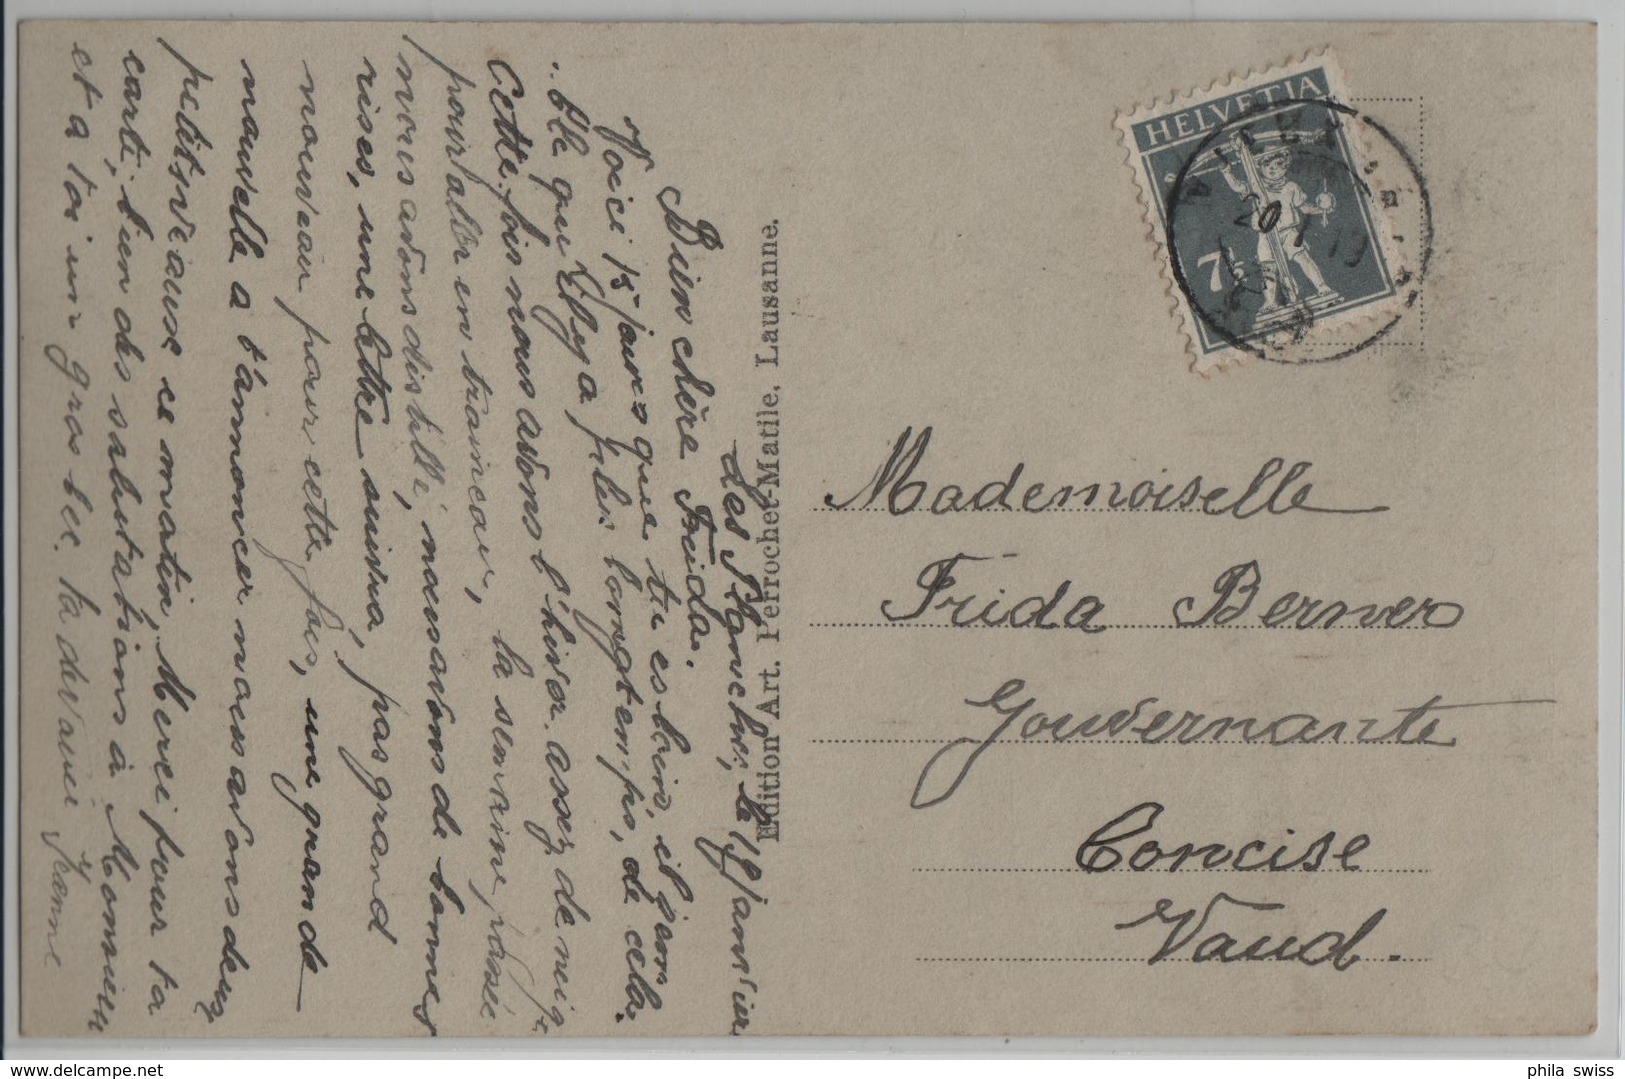 Les Planches, le 19 janvier
Bien chère Frida.
Voici 15 jours que tu es loin, il sem
ble qu'il y a plus longtemps, de cela.
Cette fois nous avons l'hiver assez de neige
pour aller en traineau, la semaine passée
nous avons distillé, nous avons de bonnes
rises, une lettre suivra, pas grand
nouveau pour cette fois, une grande
nouvelle a t'annoncer nous avons deux
petits veaux ce matin, Merci pour ta
carte, bien des salutations à Monsieur
et a toi un gros bec. Ta
Jeanne
Edition Art. Perrochet-Matile, Lausanne.
HELVETIA
7½
20 I 19
Mademoiselle
Frida Berner
Gouvernante
Concise
Vaud.
phila swiss
delcampe.net